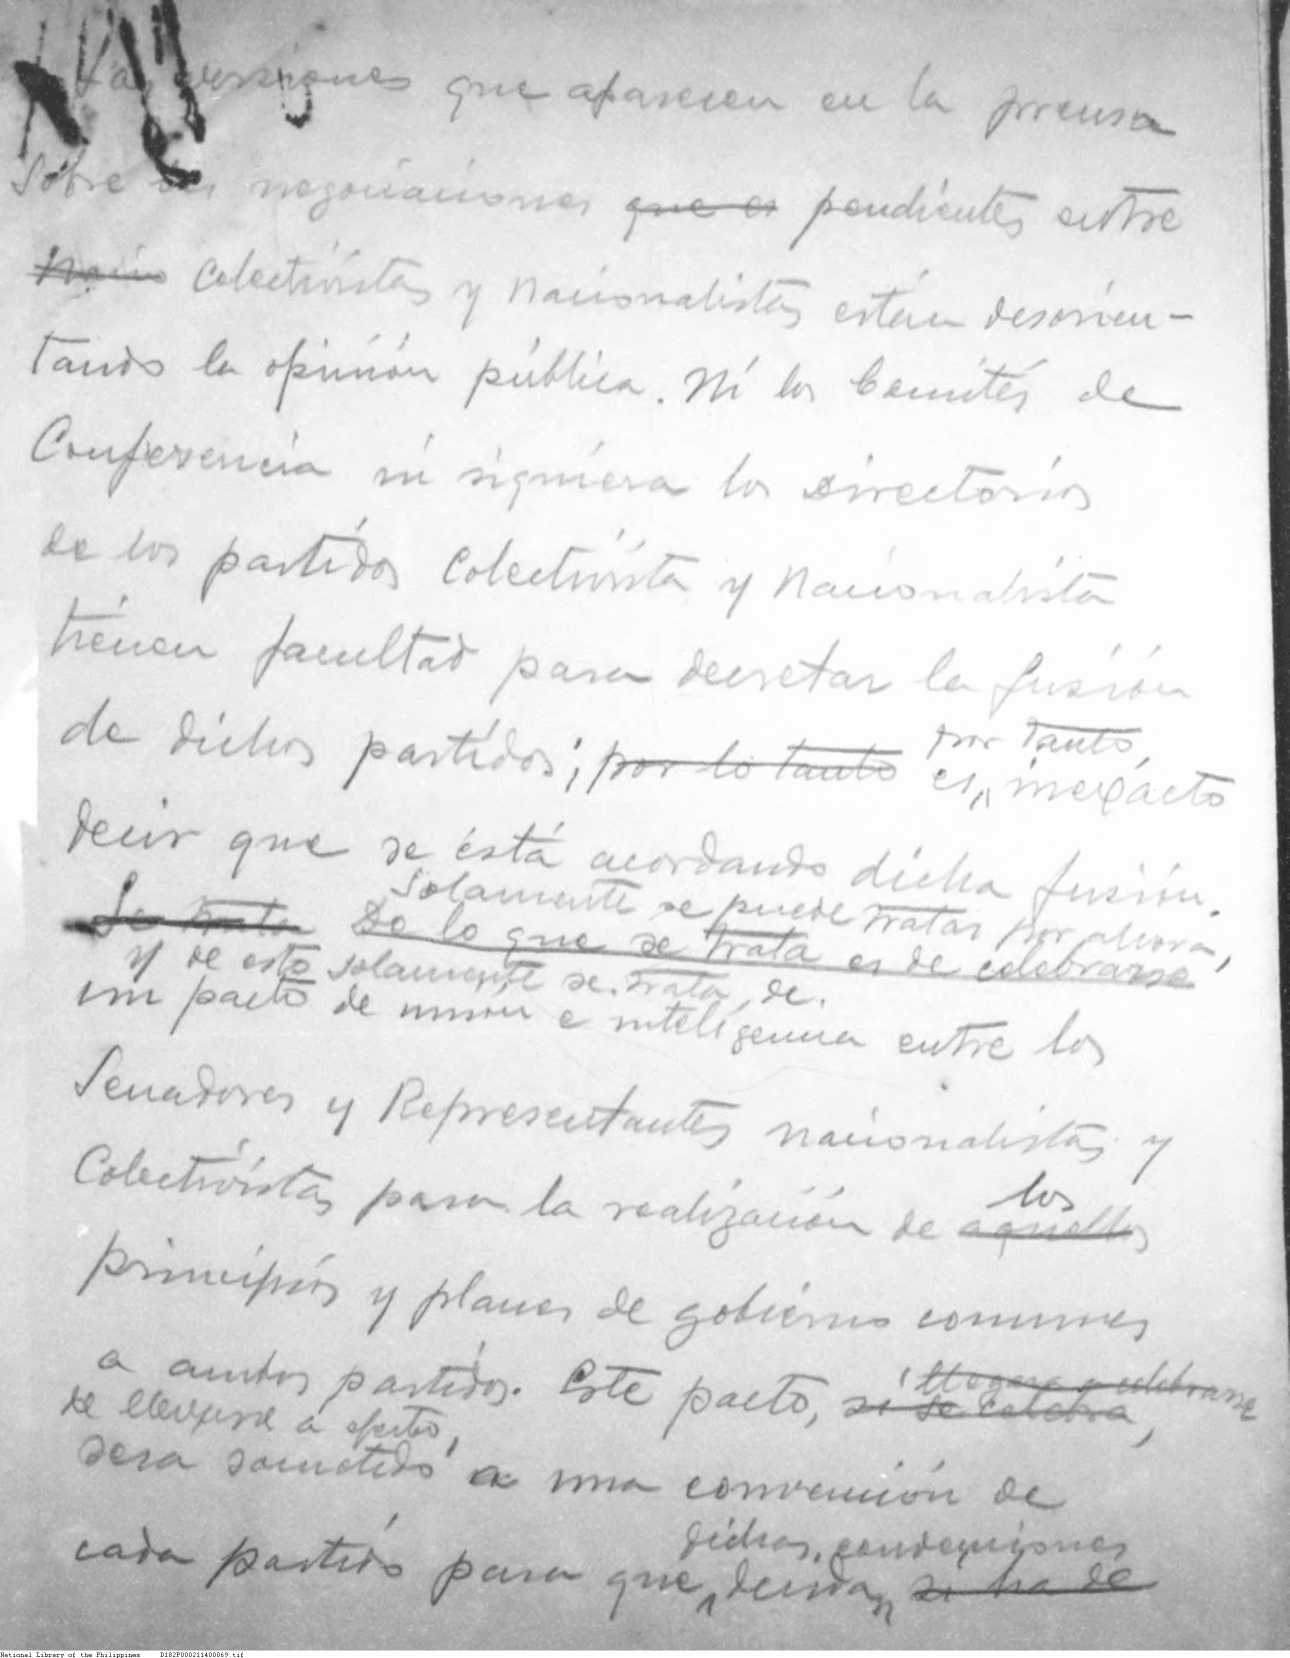 Las versiones que aparecen en la prensa
sobre las negociaciones que es pendientes entre
Colectivistas y Nacionalistas están desorien-
tando la opinión pública. Ni los Comités de
Conferencia ni siquiera los Directorios
de los partidos Colectivista y Nacionalista
tienen facultad para decretar la fusión
por tanto,
de dichos partidos; por lo tanto es, inexacto
decir que se está acordando dicha fusión.
Solamente se puede tratar por ahora,
Se trata De lo que se trata es de celebrarse
y de esto solamente se trata, de.
un pacto de unión e inteligencia entre los
Senadores y Representantes nacionalistas y
Colectivistas para la realización de aquellos
los
principios y planes de gobierno comunes
a ambos partidos. Este pacto, si se celebra,
llegara a celebrarse
de llevarse á efecto,
sera sometido a una convención de
cada partido para que decidan si ha de
dichas convenciones
National Library of the Philippines D182P000211400069.tif